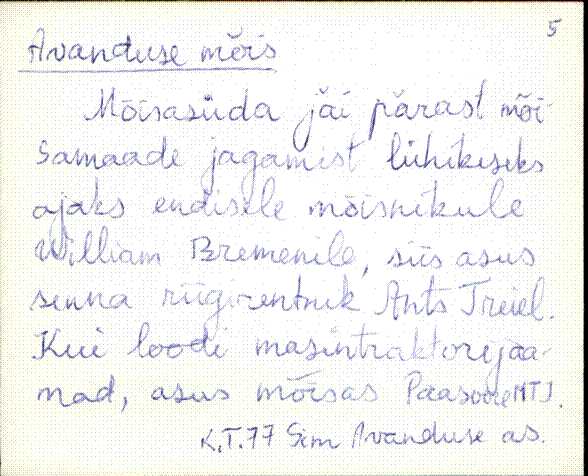 5
Avanduse mõis
Mõisasüda jäi pärast mõi-
samaade jagamist lühikeseks
ajaks endisele mõisnikule
William Bremenile, siis asus
sinna riigirentnik Ants Treiel.
Kui loodi masintraktorijaa-
mad, asus mõisas Paasvere MTJ.
K.T.77 Sim Avanduse as.